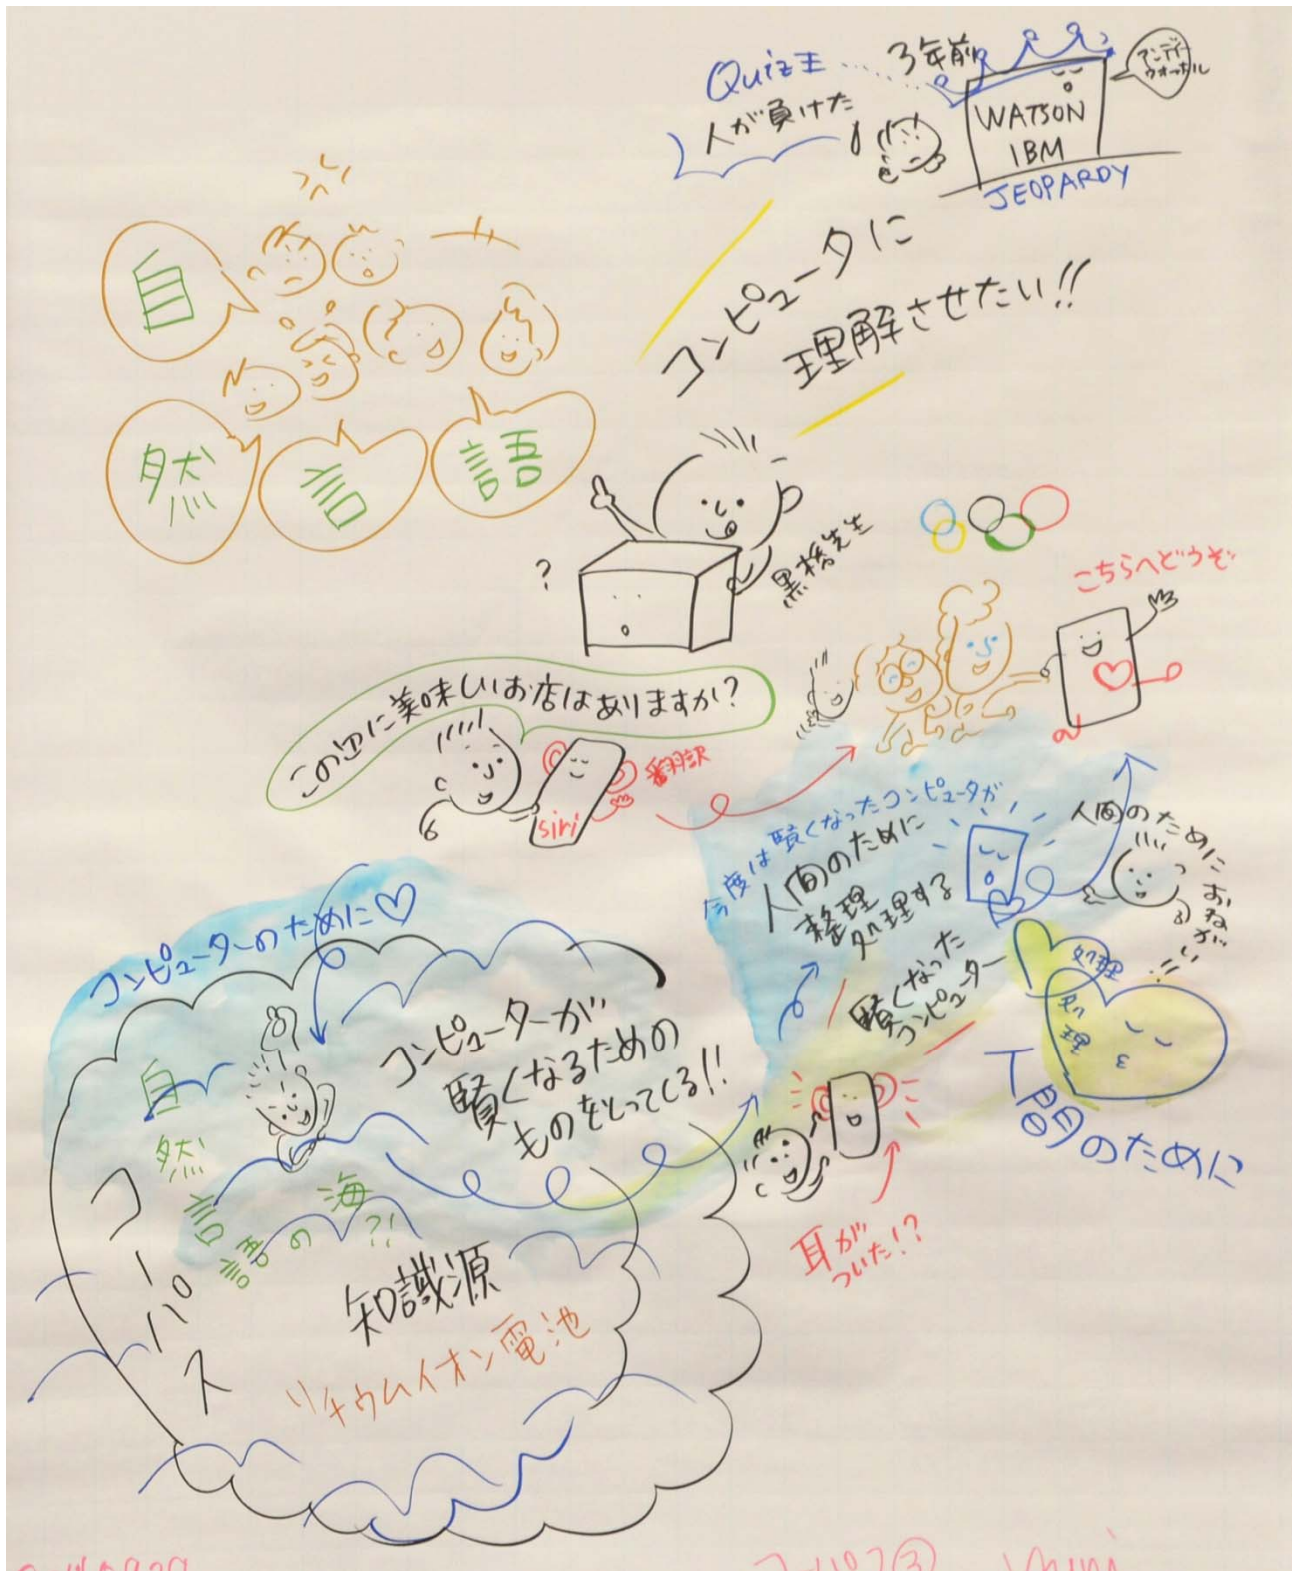 Quiz王……3年前
人が負けた
アンディー
ウォーホル
WATSON
IBM
JEOPARDY
コンピュータに
理解させたい!!
自
然
言
語
?
黒橋先生
こちらへどうぞ
この辺に美味しいお店はありますか?
siri
翻訳
今度は賢くなったコンピュータが
人間のために
整理
処理する
人間のためにおねがい
賢くなった
コンピューター
処理
処理
人間のために
コンピューターのために♡
コンピューターが
賢くなるための
ものをとってくる!!
自然言語の海?!
コーパス
知識源
リチウムイオン電池
耳が
ついた!?